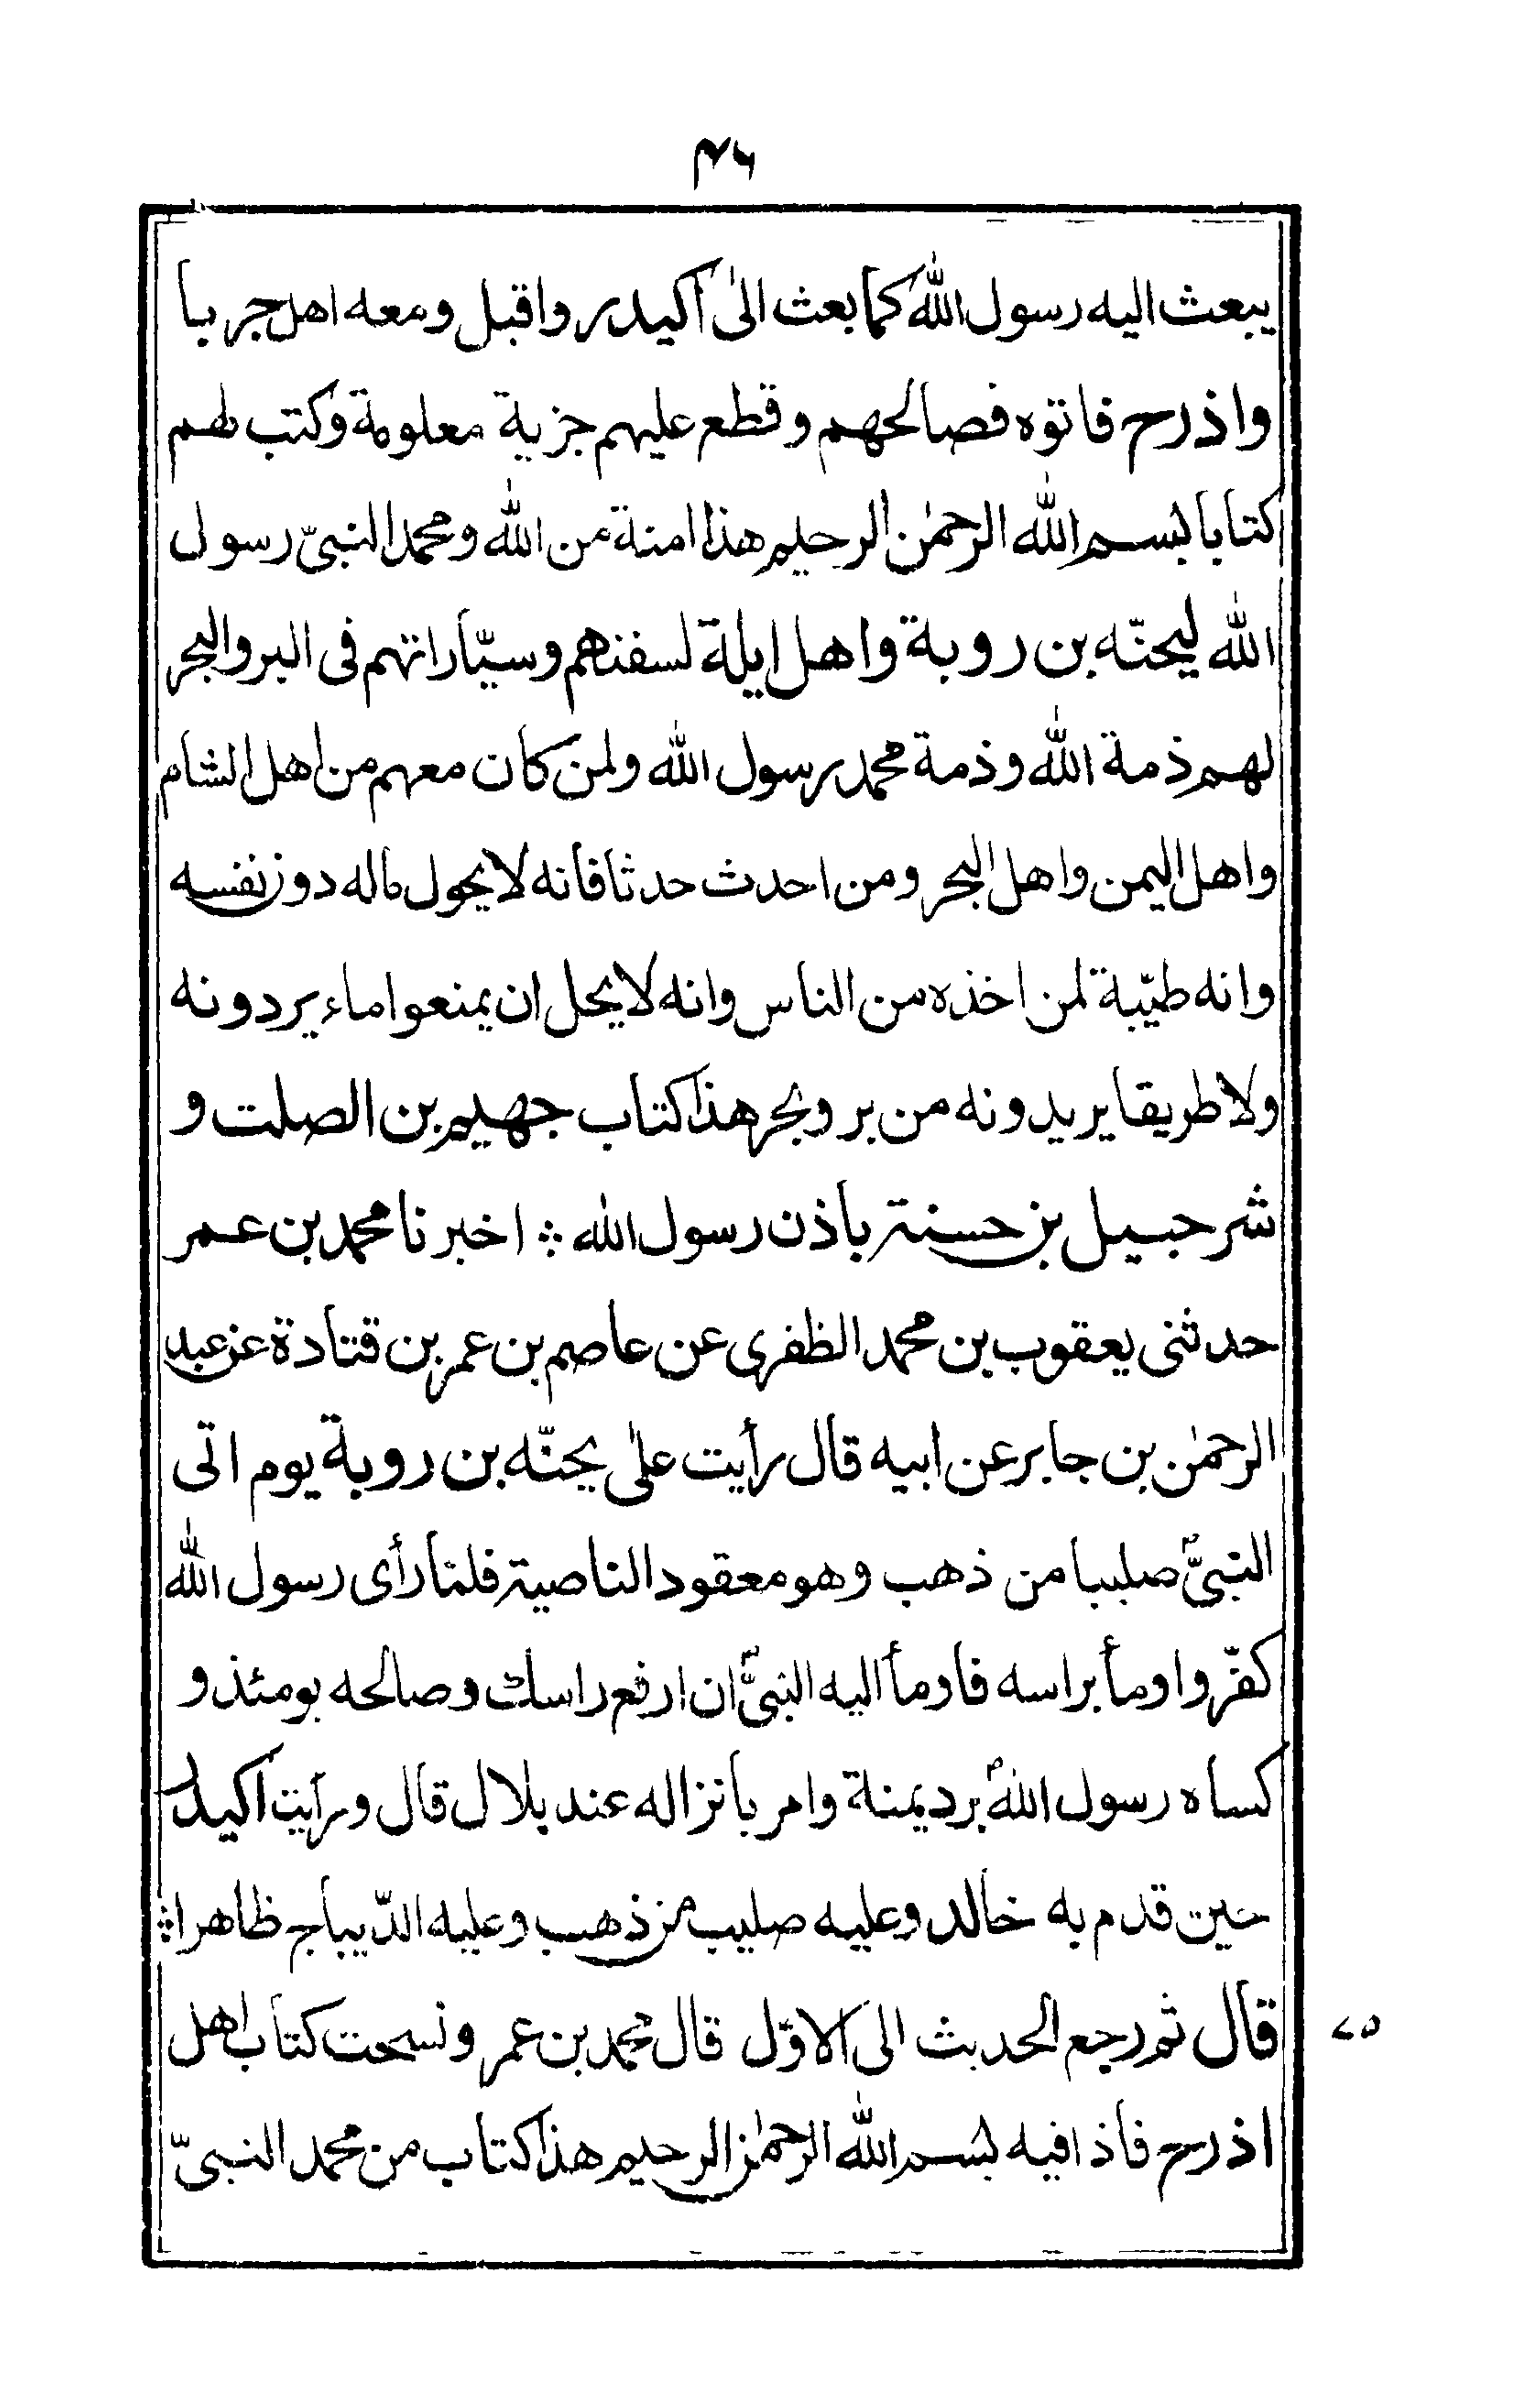 ٤٦
يبعث اليه رسول الله كما بعث الى اكيدر واقبل ومعه اهل جربا
واذرح فاتوه فصالحهم وقطع عليهم جزية معلومة وكتب لهم
كتابا بسم الله الرحمٰن الرحيم هذا امنة من الله ومحمد النبيّ رسول
الله ليحنّه بن روبة واهل ايلة لسفنهم وسيّاراتهم فى البر والبحر
لهم ذمة الله وذمة محمد رسول الله ولمن كان معهم من اهل الشام
واهل اليمن واهل البحر ومن احدث حدثا فانه لا يحول ماله دون نفسه
وانه طيّبة لمن اخذه من الناس وانه لا يحل ان يمنعوا ماء يردونه
ولا طريقا يريدونه من بر وبحر هذا كتاب جهيم بن الصلت و
شرحبيل بن حسنة باذن رسول الله ؞ اخبرنا محمد بن عمر
حدثنى يعقوب بن محمد الظفرى عن عاصم بن عمر بن قتادة عن عبد
الرحمٰن بن جابر عن ابيه قال رأيت علىٰ يحنّه بن روبة يوم اتى
النبىّ صليبا من ذهب وهو معقود الناصية فلمّا رأى رسول الله
كفّر واومأ براسه فاومأ اليه النبىّ ان ارفع راسك وصالحه يومئذ و
كساه رسول الله برد يمنة وامر بانزاله عند بلال قال ورأيت اكيدر
حين قدم به خالد وعليه صليب من ذهب وعليه الدّيباج ظاهرا ؞
قال ثم رجع الحديث الى الاوّل قال محمد بن عمر ونسخت كتاب اهل
اذرح فاذا فيه بسم الله الرحمٰن الرحيم هذا كتاب من محمد النبىّ